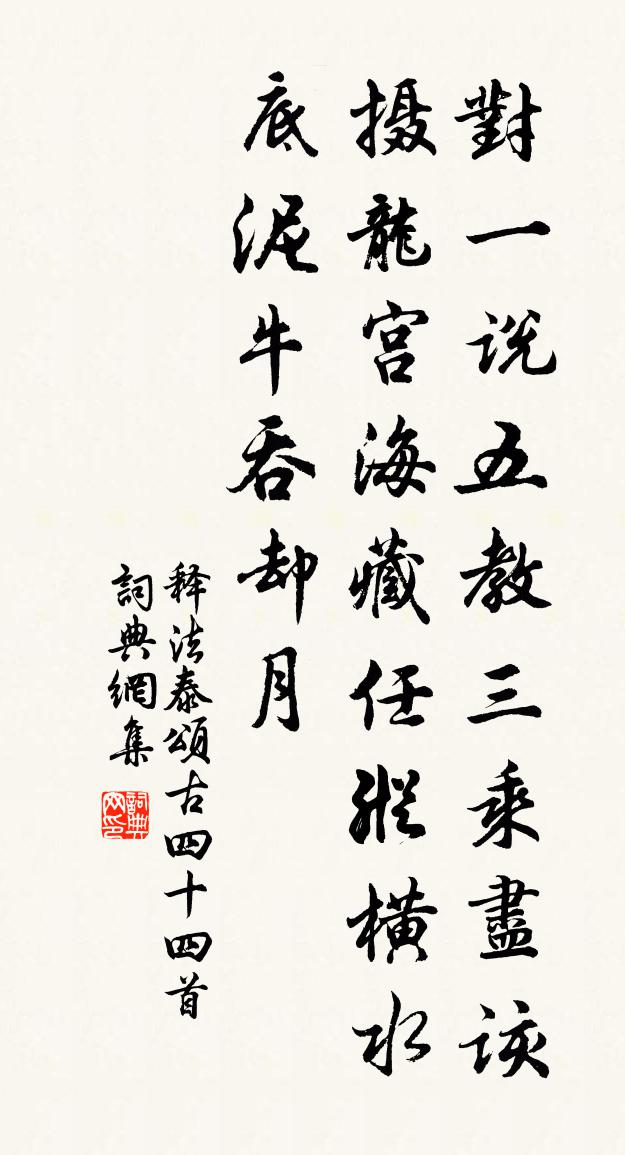 對一說五教三乘盡該
摄龍宮海藏任縱橫水
底泥牛吞却月
释法泰頌古四十四首
詞典網集
詞典网印